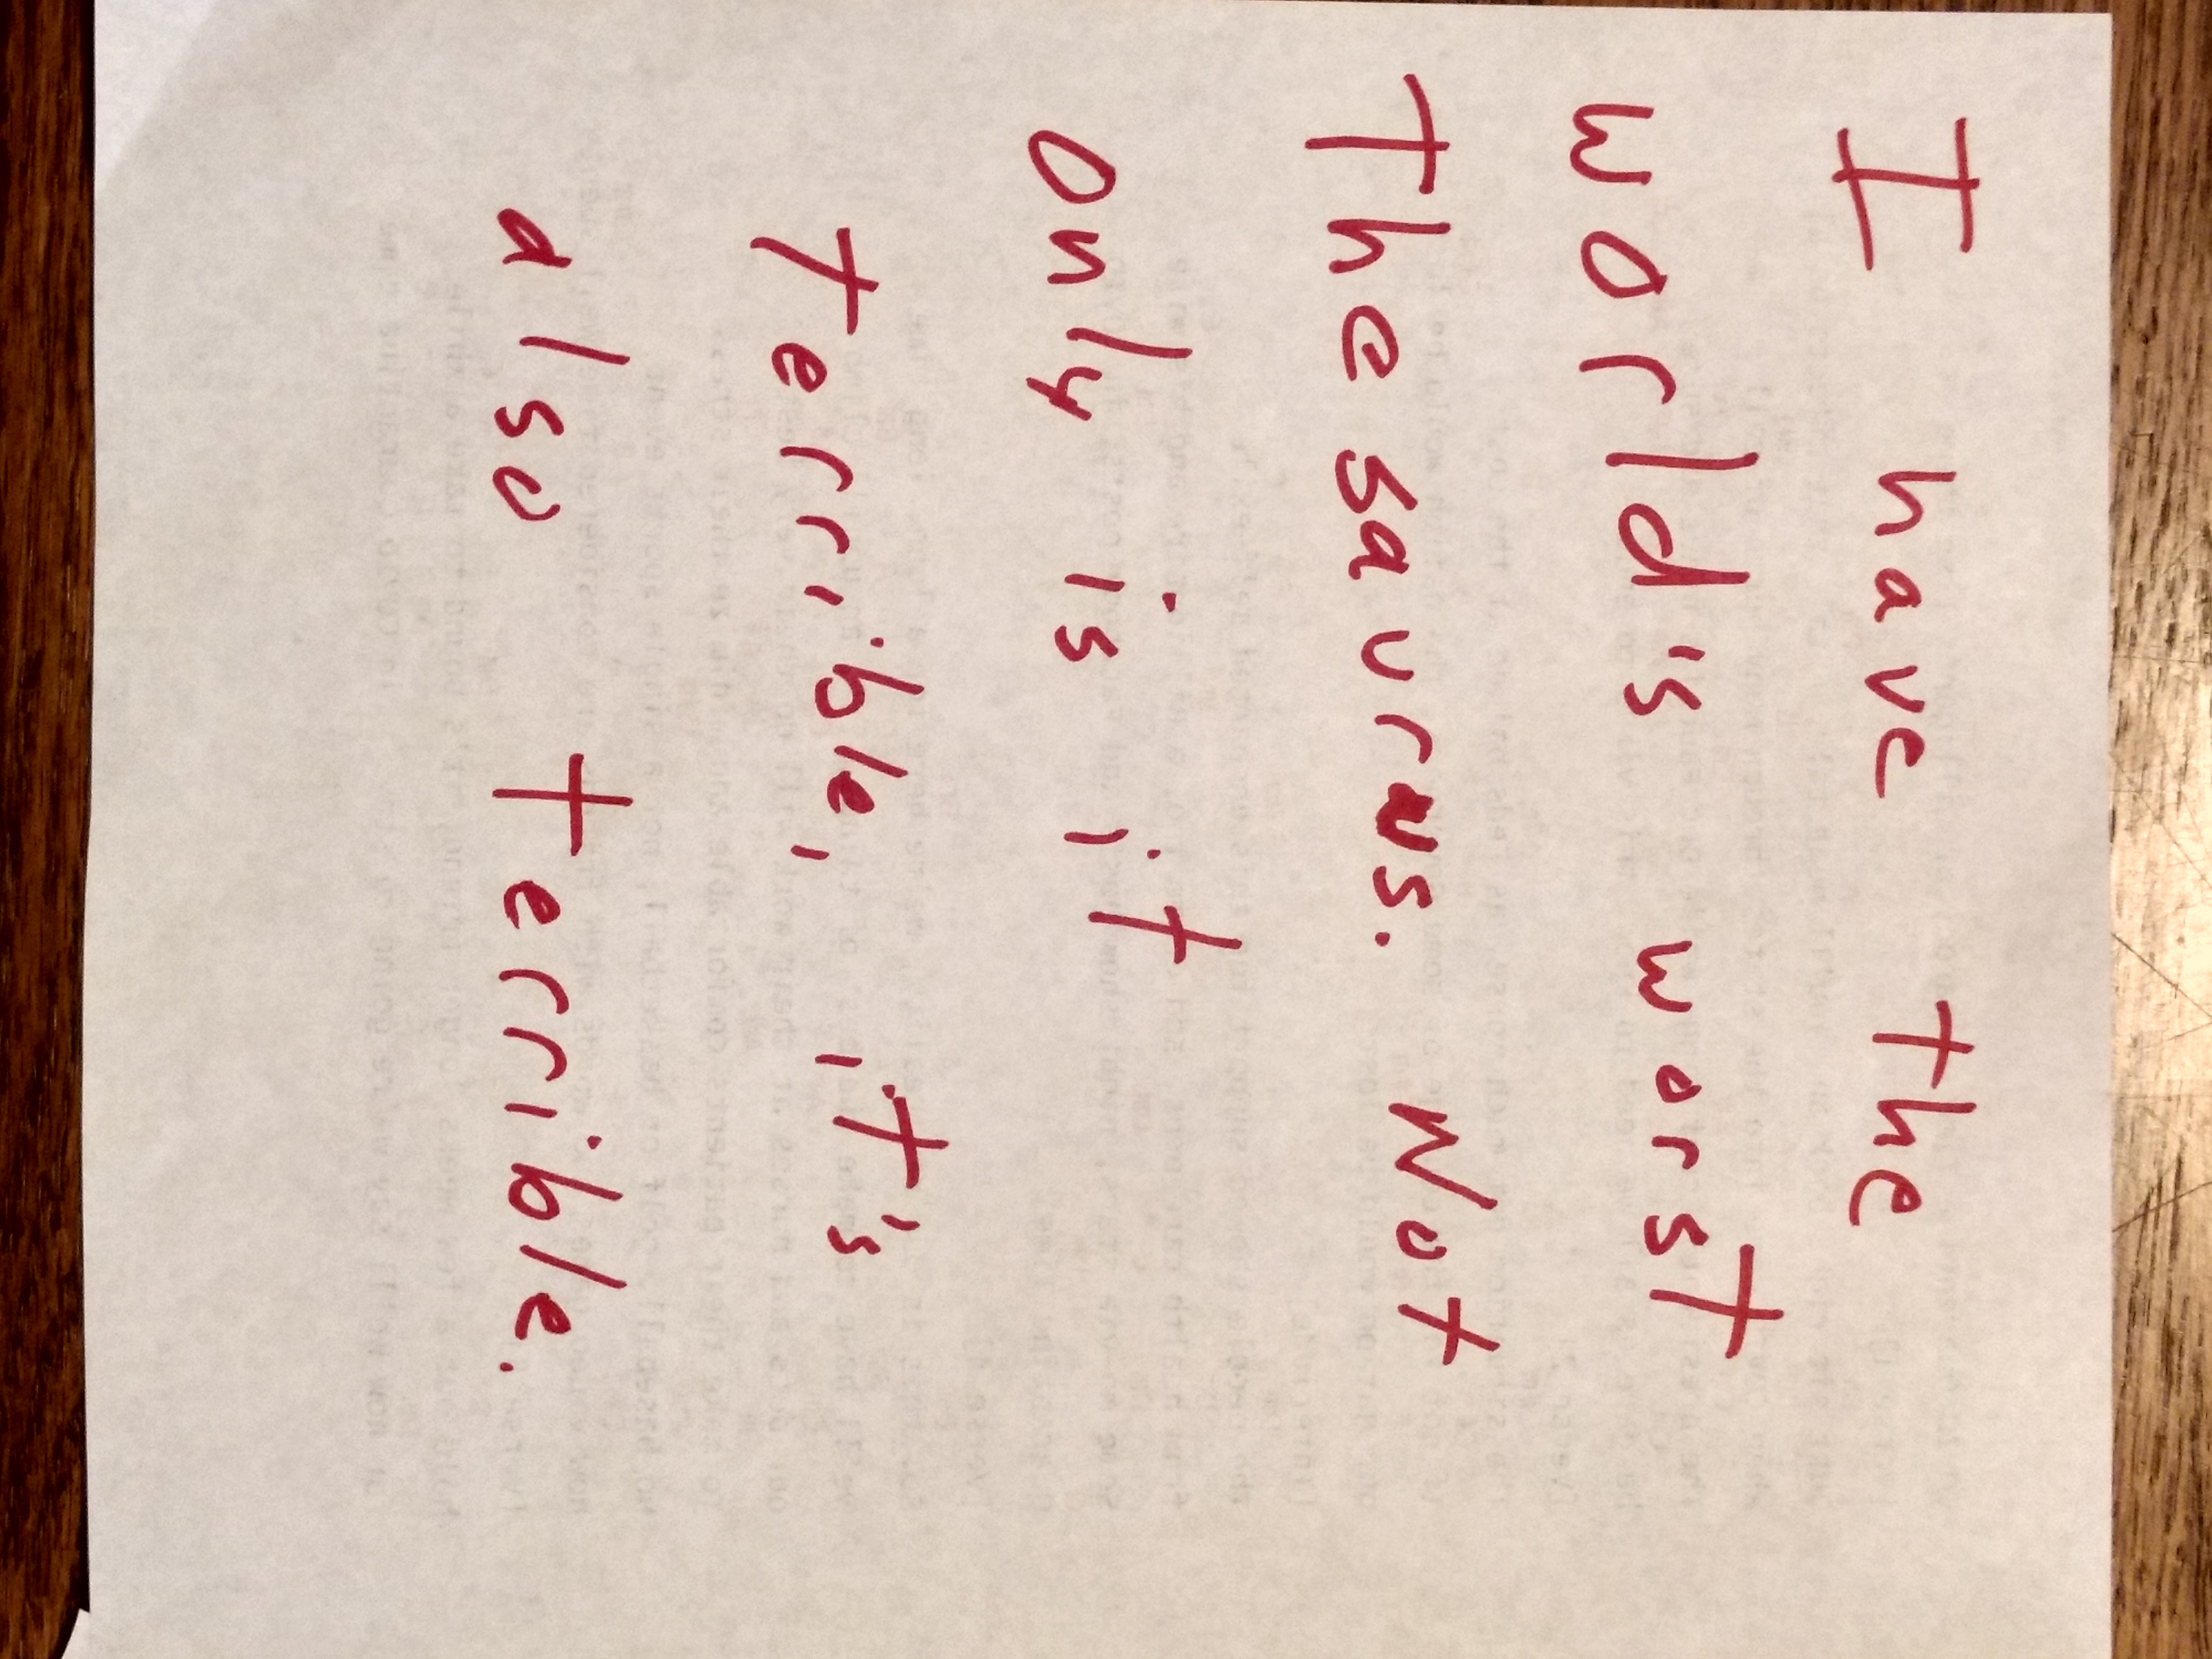 I have the
world's worst
Thesaurus. Not
only is it
terrible, it's
also terrible.